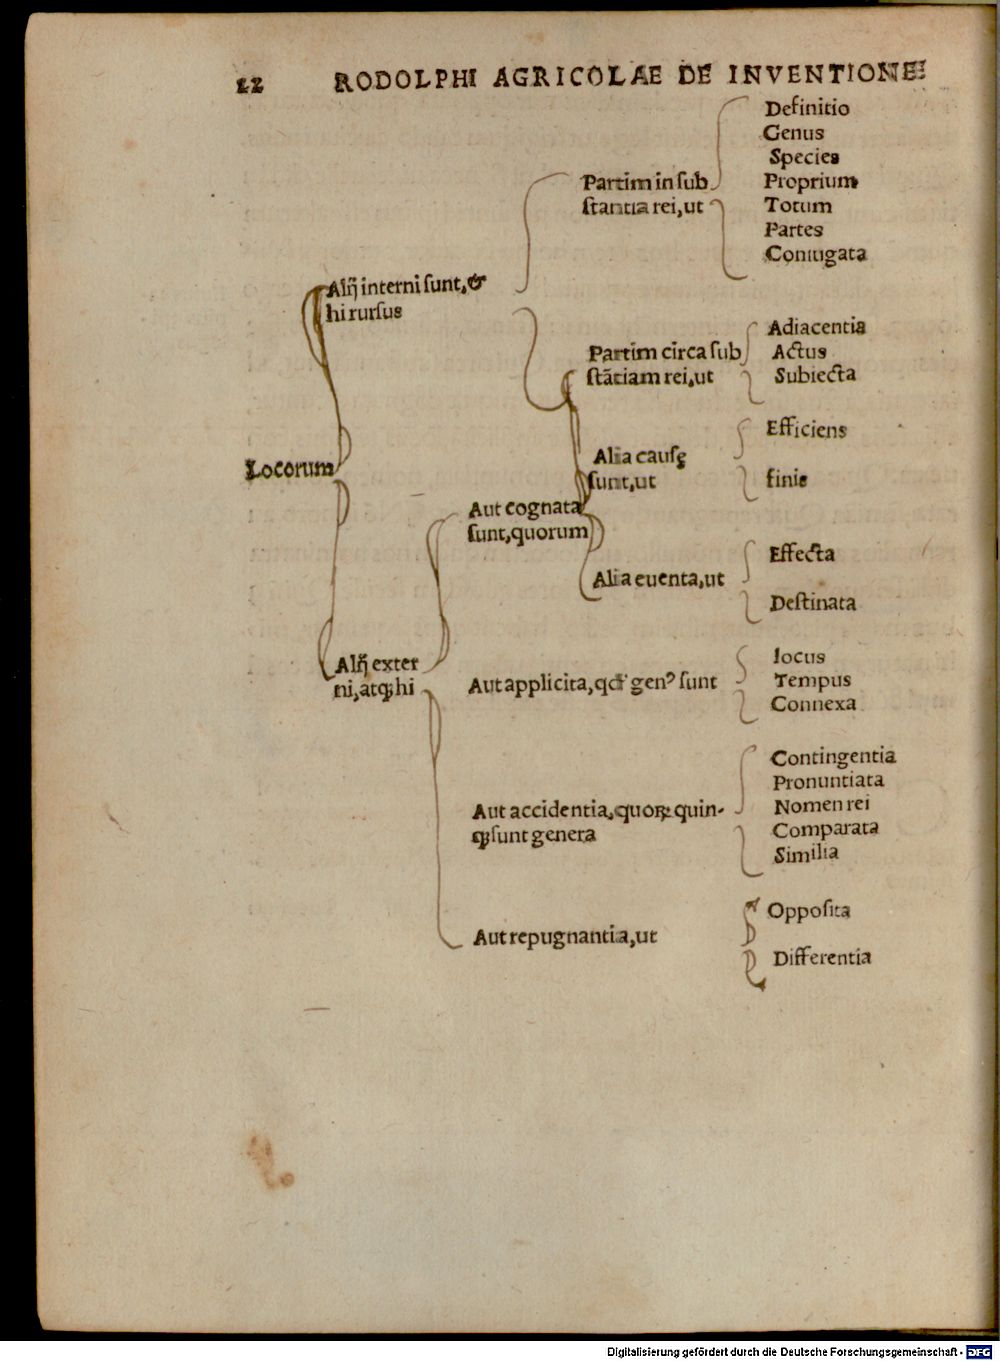 22 RODOLPHI AGRICOLAE DE INVENTIONE
Definitio
Genus
Species
Partim in sub
stantia rei, ut
Proprium
Totum
Partes
Coniugata
Alij interni sunt, &
hi rursus
Adiacentia
Partim circa sub
stātiam rei, ut
Actus
Subiecta
Efficiens
Alia causę
sunt, ut
finis
Locorum
Aut cognata
sunt, quorum
Effecta
Alia euenta, ut
Destinata
Alij exter
ni, atq; hi
locus
Aut applicita, qđ gen⁹ sunt
Tempus
Connexa
Contingentia
Pronuntiata
Aut accidentia, quoꝝ quin-
q; sunt genera
Nomen rei
Comparata
Similia
Opposita
Aut repugnantia, ut
Differentia
Digitalisierung gefördert durch die Deutsche Forschungsgemeinschaft - DFG